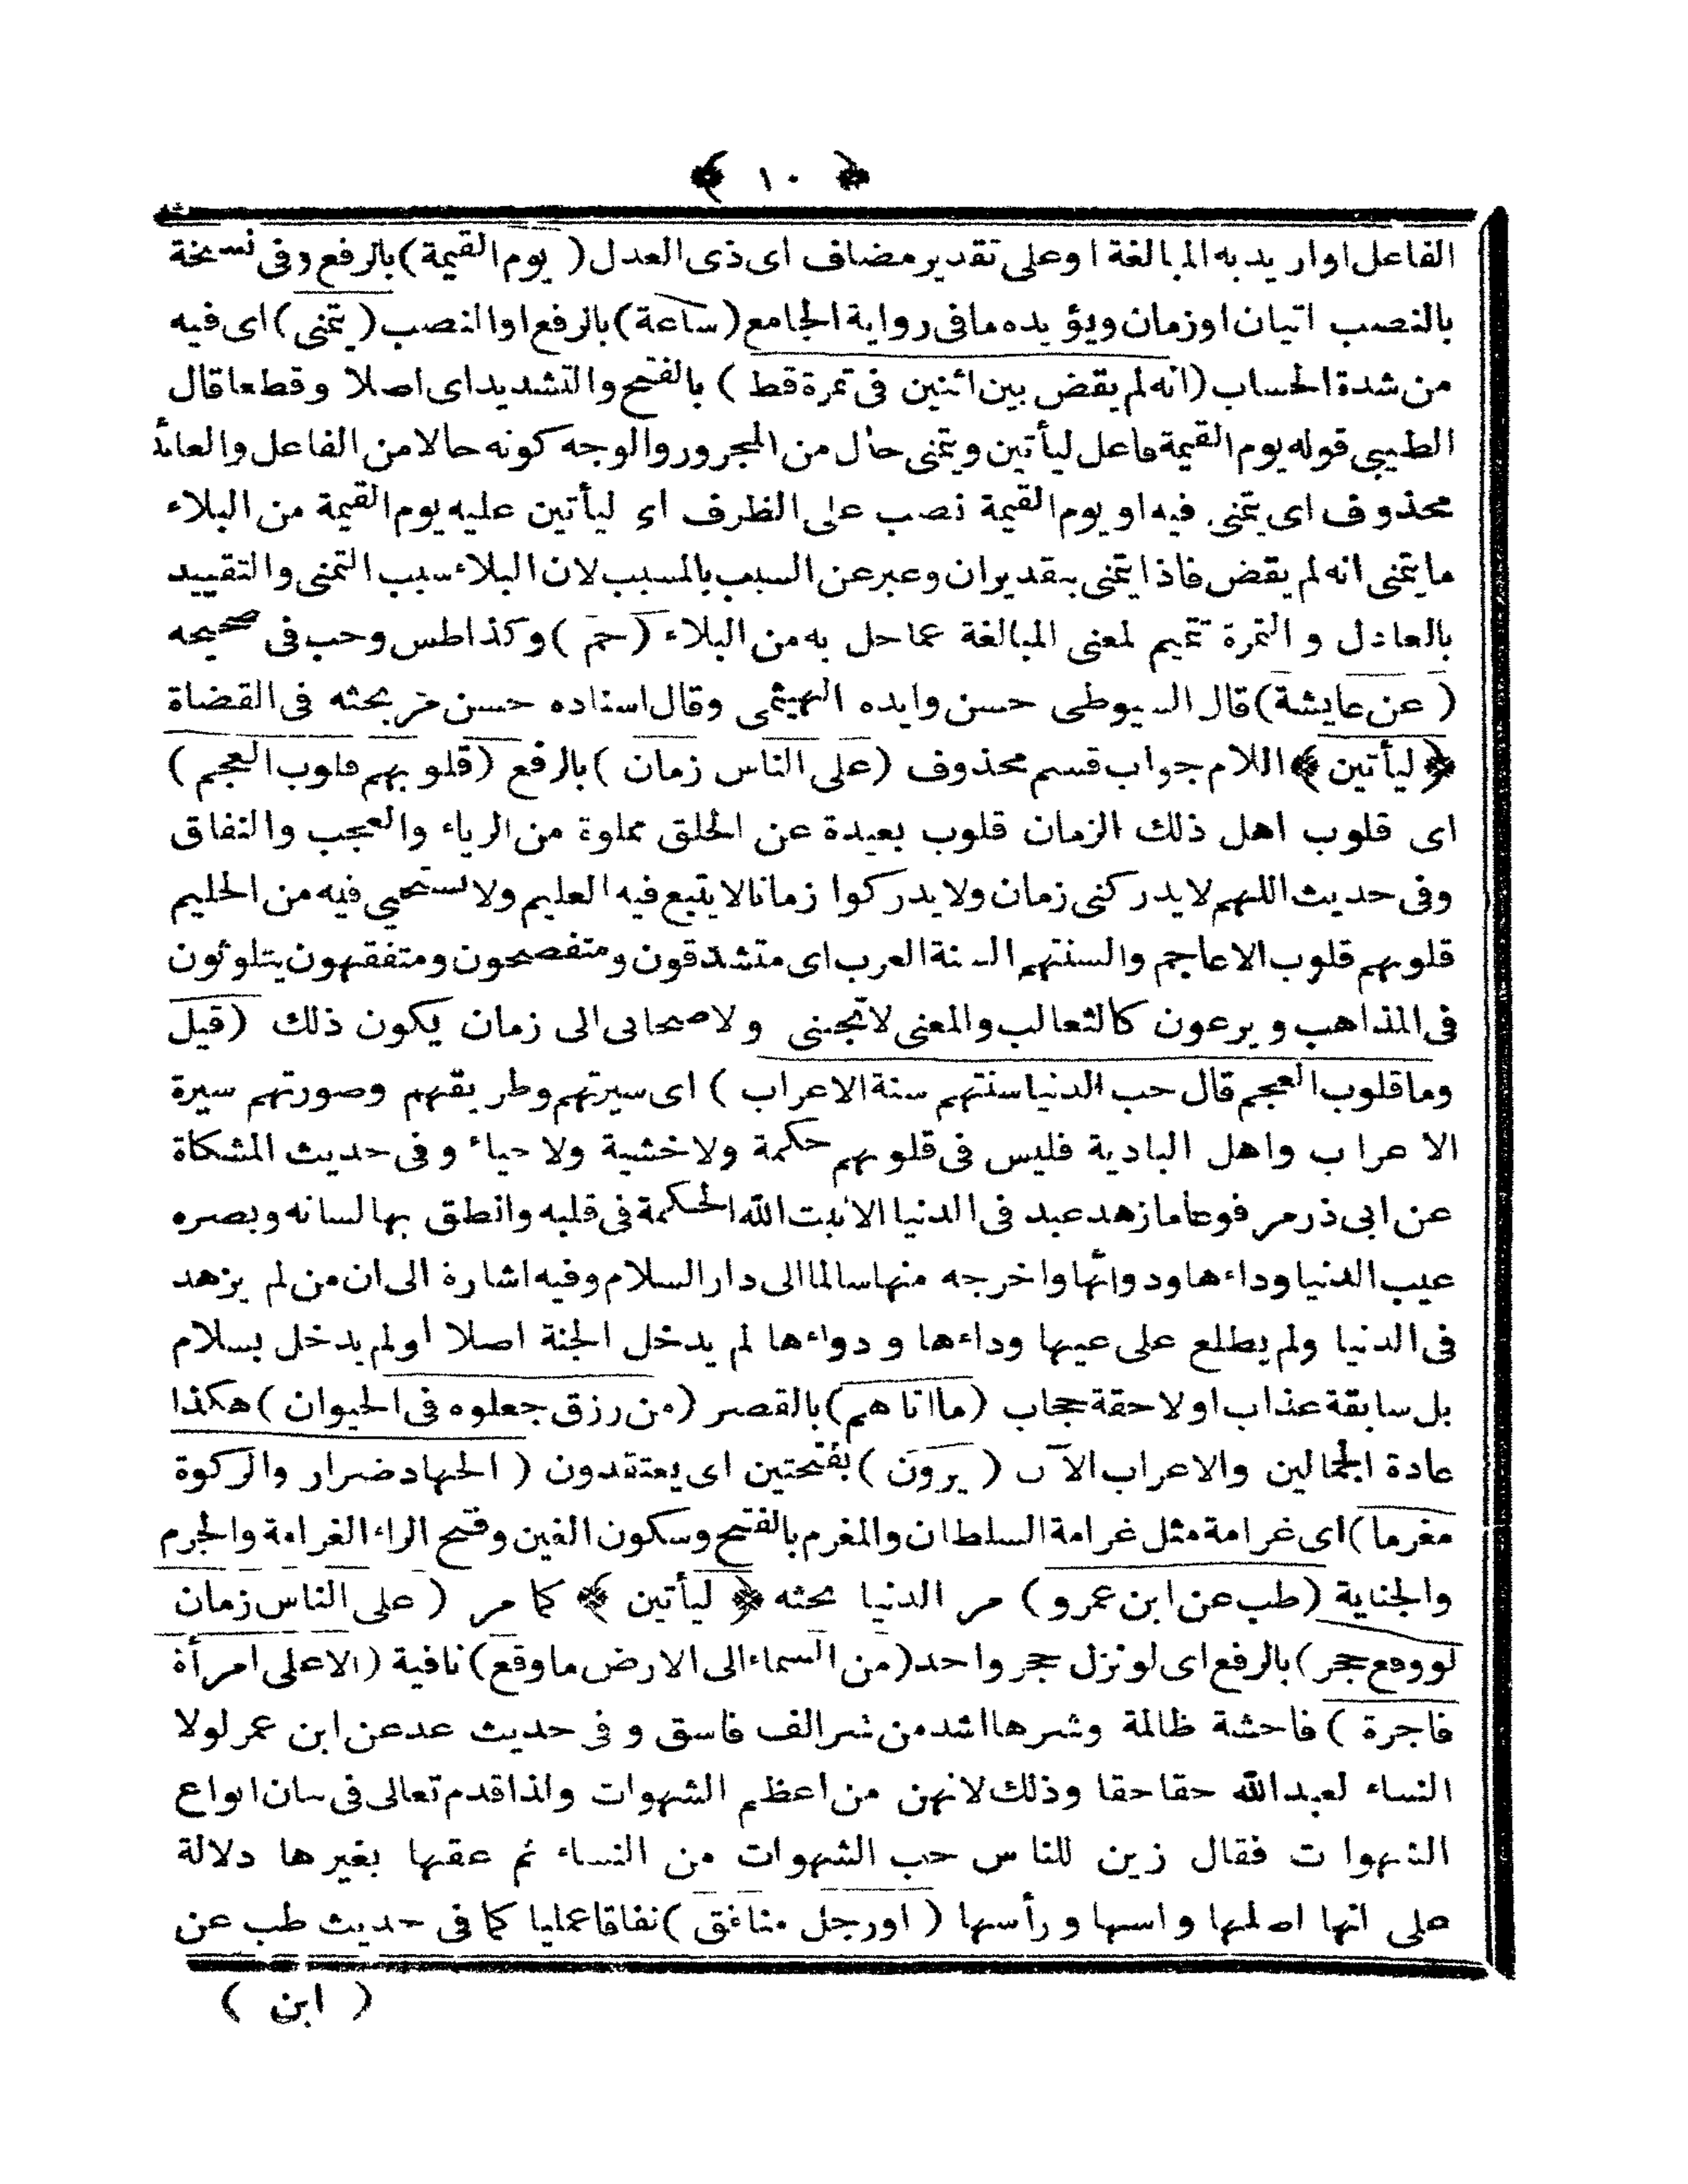 ﴿ ١٠ ﴾
الفاعل او اريد به المبالغة او على تقدير مضاف اى ذى العدل ( يوم القيمة ) بالرفع وفى نسخة
بالنصب اتيان او زمان ويؤيده ما فى رواية الجامع ( ساعة ) بالرفع او النصب ( يتمنى ) اى فيه
من شدة الحساب ( انه لم يقض بين اثنين فى تمرة قط ) بالفتح والتشديد اى اصلا وقطعا قال
الطيبى قوله يوم القيمة فاعل ليأتين ويتمنى حال من المجرور والوجه كونه حالا من الفاعل والعائد
محذوف اى يتمنى فيه او يوم القيمة نصب على الظرف اى ليأتين عليه يوم القيمة من البلاء
ما يتمنى انه لم يقض فاذا يتمنى بتقدير ان وعبر عن السبب بالمسبب لان البلاء سبب التمنى والتقييد
بالعادل و التمرة تتميم لمعنى المبالغة عما حل به من البلاء ( حم ) وكذا طس وحب فى صحيحه
( عن عايشة ) قال السيوطى حسن وايده الهيثمى وقال اسناده حسن مر بحثه فى القضاة
﴿ ليأتين ﴾ اللام جواب قسم محذوف ( على الناس زمان ) بالرفع ( قلوبهم قلوب العجم )
اى قلوب اهل ذلك الزمان قلوب بعيدة عن الخلق مملوة من الرياء والعجب والنفاق
وفى حديث اللهم لا يدركنى زمان ولا يدركوا زمانا لا يتبع فيه العليم ولا تستحيي فيه من الحليم
قلوبهم قلوب الاعاجم والسنتهم السنة العرب اى متشدقون ومتفصحون ومتفقهون يتلوثون
فى المذاهب و يرعون كالثعالب والمعنى لا تجبنى ولا صحابى الى زمان يكون ذلك ( قيل
وما قلوب العجم قال حب الدنيا سنتهم سنة الاعراب ) اى سيرتهم وطريقهم وصورتهم سيرة
الاعراب واهل البادية فليس فى قلوبهم حكمة ولا خشية ولا حياء وفى حديث المشكاة
عن ابى ذر مرفوعا ما زهد عبد فى الدنيا الا انبت الله الحكمة فى قلبه وانطق بها لسانه وبصره
عيب الدنيا وداءها ودوائها واخرجه منها سالما الى دار السلام وفيه اشارة الى ان من لم يزهد
فى الدنيا ولم يطلع على عيبها وداءها و دواءها لم يدخل الجنة اصلا أو لم يدخل بسلام
بل سابقة عذاب او لاحقة حجاب ( ما اتاهم ) بالقصر ( من رزق جعلوه فى الحيوان ) هكذا
عادة الجمالين والاعراب الآن ( يرون ) بفتحتين اى يعتقدون ( الجهاد ضرار والزكوة
مغرما ) اى غرامة مثل غرامة السلطان والمغرم بالفتح وسكون الغين وفتح الراء الغرامة والجرم
والجناية ( طب عن ابن عمرو ) مر الدنيا بحثه ﴿ ليأتين ﴾ كما مر ( على الناس زمان
لو وقع حجر ) بالرفع اى لو نزل حجر واحد ( من السماء الى الارض ما وقع ) نافية ( الا على امرأة
فاجرة ) فاحشة ظالمة وشرها اشد من شر الف فاسق و فى حديث عد عن ابن عمر لولا
النساء لعبد الله حقا حقا وذلك لانهن من اعظم الشهوات ولذا قدم تعالى فى بيان انواع
الشهوات فقال زين للناس حب الشهوات من النساء ثم عقبها بغيرها دلالة
على انها اصلها واسها و رأسها ( او رجل منافق ) نفاقا عمليا كما فى حديث طب عن
( ابن )